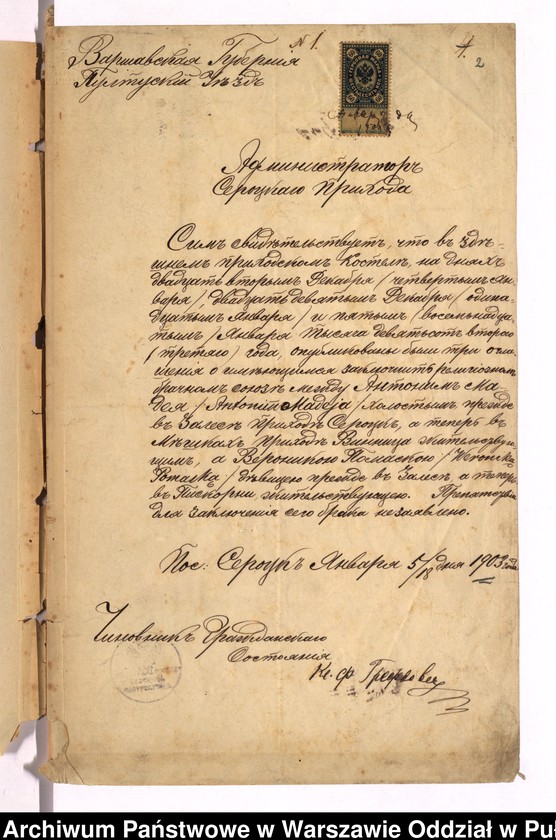 Варшавская Губернія
Пултускій Уѣздъ
N 1.
2
Администраторъ
Сероцкаго Прихода
Симъ свидѣтельствуетъ, что въ здѣ-
шнемъ приходскомъ Костелѣ, на дняхъ
двадцать вторымъ Декабря / четвертымъ Ян-
варя /, двадцать девятымъ Декабря / одина-
дцатымъ Января / и пятымъ / восемьнадца-
тымъ / Января тысяча девятьсотъ втораго
/ третьяго / года, опубликованы были три огла-
шенія о имѣющимся заключить религіозномъ
брачномъ союзѣ между Антоніемъ Ма-
дея / Antonii Madeja / холостымъ прежде
въ Залесе приходѣ Сероцкъ, а теперь въ
приходѣ Винница жительствую-
щимъ, а Вероникою / Weronika
/ дѣвицею прежде въ Залесе а теперь
въ жительствующею. Препятствій
для заключенія сего брака незаявлено.
Пос: Сероцкъ Января 5/18 дня 1903 года
Чиновникъ Гражданскаго
Состоянія
Кс. Ф.
Archiwum Państwowe w Warszawie Oddział w Pu